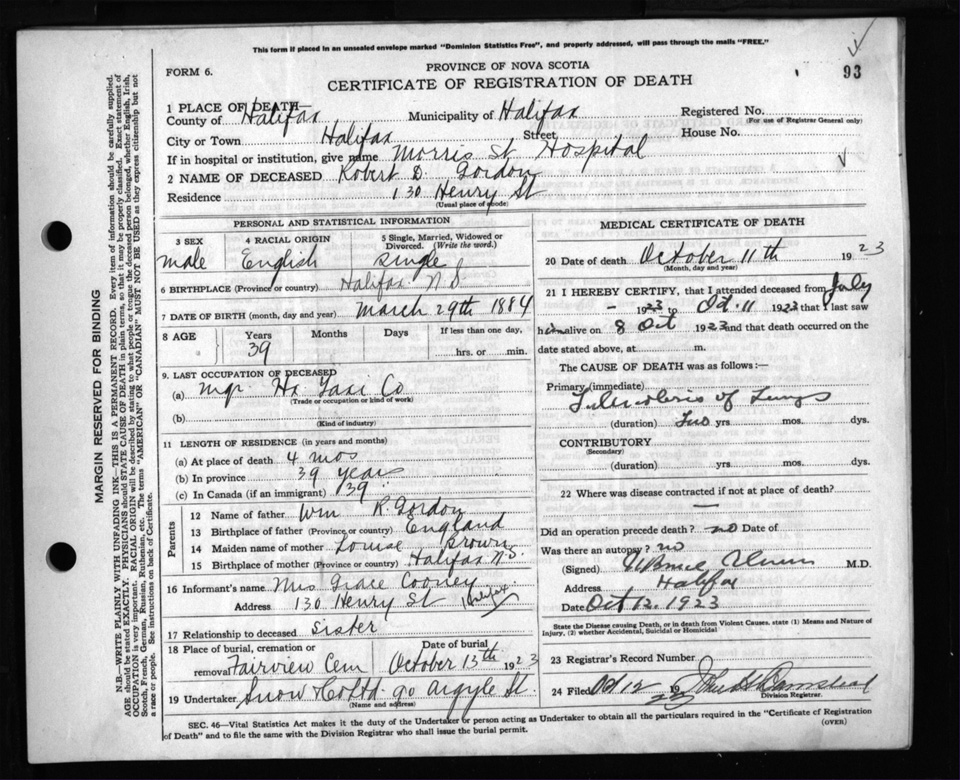 This form if placed in an unsealed envelope marked "Dominion Statistics Free", and properly addressed, will pass through the mails "FREE."
FORM 6.
PROVINCE OF NOVA SCOTIA
CERTIFICATE OF REGISTRATION OF DEATH
93
1 PLACE OF DEATH—
County of Halifax Municipality of Halifax Registered No.
(For use of Registrar General only)
City or Town Halifax Street House No.
If in hospital or institution, give name Morris St Hospital
2 NAME OF DECEASED Robert D. Gordon
Residence 130 Henry St
(Usual place of abode)
PERSONAL AND STATISTICAL INFORMATION
3 SEX 4 RACIAL ORIGIN 5 Single, Married, Widowed or Divorced. (Write the word.)
male English single
6 BIRTHPLACE (Province or country) Halifax N S
7 DATE OF BIRTH (month, day and year) March 29th 1884
8 AGE Years Months Days If less than one day,
39 hrs. or min.
9. LAST OCCUPATION OF DECEASED
(a) Mgr. Hx Taxi Co
(Trade or occupation or kind of work)
(b)
(Kind of industry)
11 LENGTH OF RESIDENCE (in years and months)
(a) At place of death 4 mos
(b) In province 39 years
(c) In Canada (if an immigrant) 39 "
Parents
12 Name of father Wm R. Gordon
13 Birthplace of father (Province or country) England
14 Maiden name of mother Louise Brown
15 Birthplace of mother (Province or country) Halifax N.S.
16 Informant's name Mrs Grace Cooney
Address 130 Henry St Halifax
17 Relationship to deceased Sister
18 Place of burial, cremation or removal Fairview Cem Date of burial October 13th 1923
19 Undertaker Snow & Co Ltd. 90 Argyle St.
(Name and address)
MEDICAL CERTIFICATE OF DEATH
20 Date of death October 11th 1923
(Month, day and year)
21 I HEREBY CERTIFY, that I attended deceased from July
– 1923 to Oct. 11 1923 that I last saw
him alive on 8 Oct 1923 and that death occurred on
date stated above, at m.
The CAUSE OF DEATH was as follows:—
Primary (immediate)
Tuberculosis of Lungs
(duration) Two yrs mos. dys.
CONTRIBUTORY
(Secondary)
(duration) yrs mos. dys.
22 Where was disease contracted if not at place of death?
—
Did an operation precede death? no Date of
Was there an autopsy? no
(Signed) M.D.
Address Halifax
Date Oct 12. 1923
State the Disease causing Death, or in death from Violent Causes, state (1) Means and Nature of Injury, (2) whether Accidental, Suicidal or Homicidal
23 Registrar's Record Number
24 Filed Oct 12 1923 John
Division Registrar.
SEC. 46—Vital Statistics Act makes it the duty of the Undertaker or person acting as Undertaker to obtain all the particulars required in the "Certificate of Registration
of Death" and to file the same with the Division Registrar who shall issue the burial permit.
(OVER)
MARGIN RESERVED FOR BINDING
N.B.—WRITE PLAINLY WITH UNFADING INK—THIS IS A PERMANENT RECORD. Every item of information should be carefully supplied.
AGE should be stated EXACTLY. PHYSICIANS should STATE CAUSE OF DEATH in plain terms, so that it may be properly classified. Exact statement of
OCCUPATION is very important. RACIAL ORIGIN will be described by stating to what people or tongue the deceased person belonged, whether English, Irish,
Scotch, French, German, Russian, Ruthenian, etc. The terms "AMERICAN" OR "CANADIAN" MUST NOT BE USED as they express citizenship but not
a race or people. See instructions on back of Certificate.